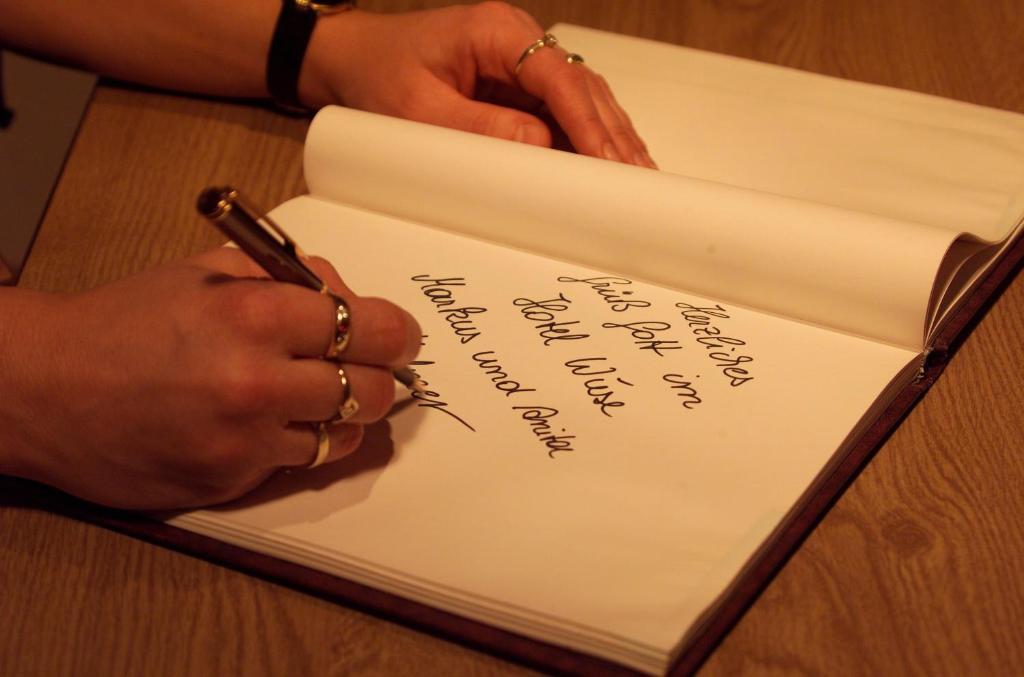 Herzliches
Grüß Gott im
Hotel Wiese
Markus und Anita